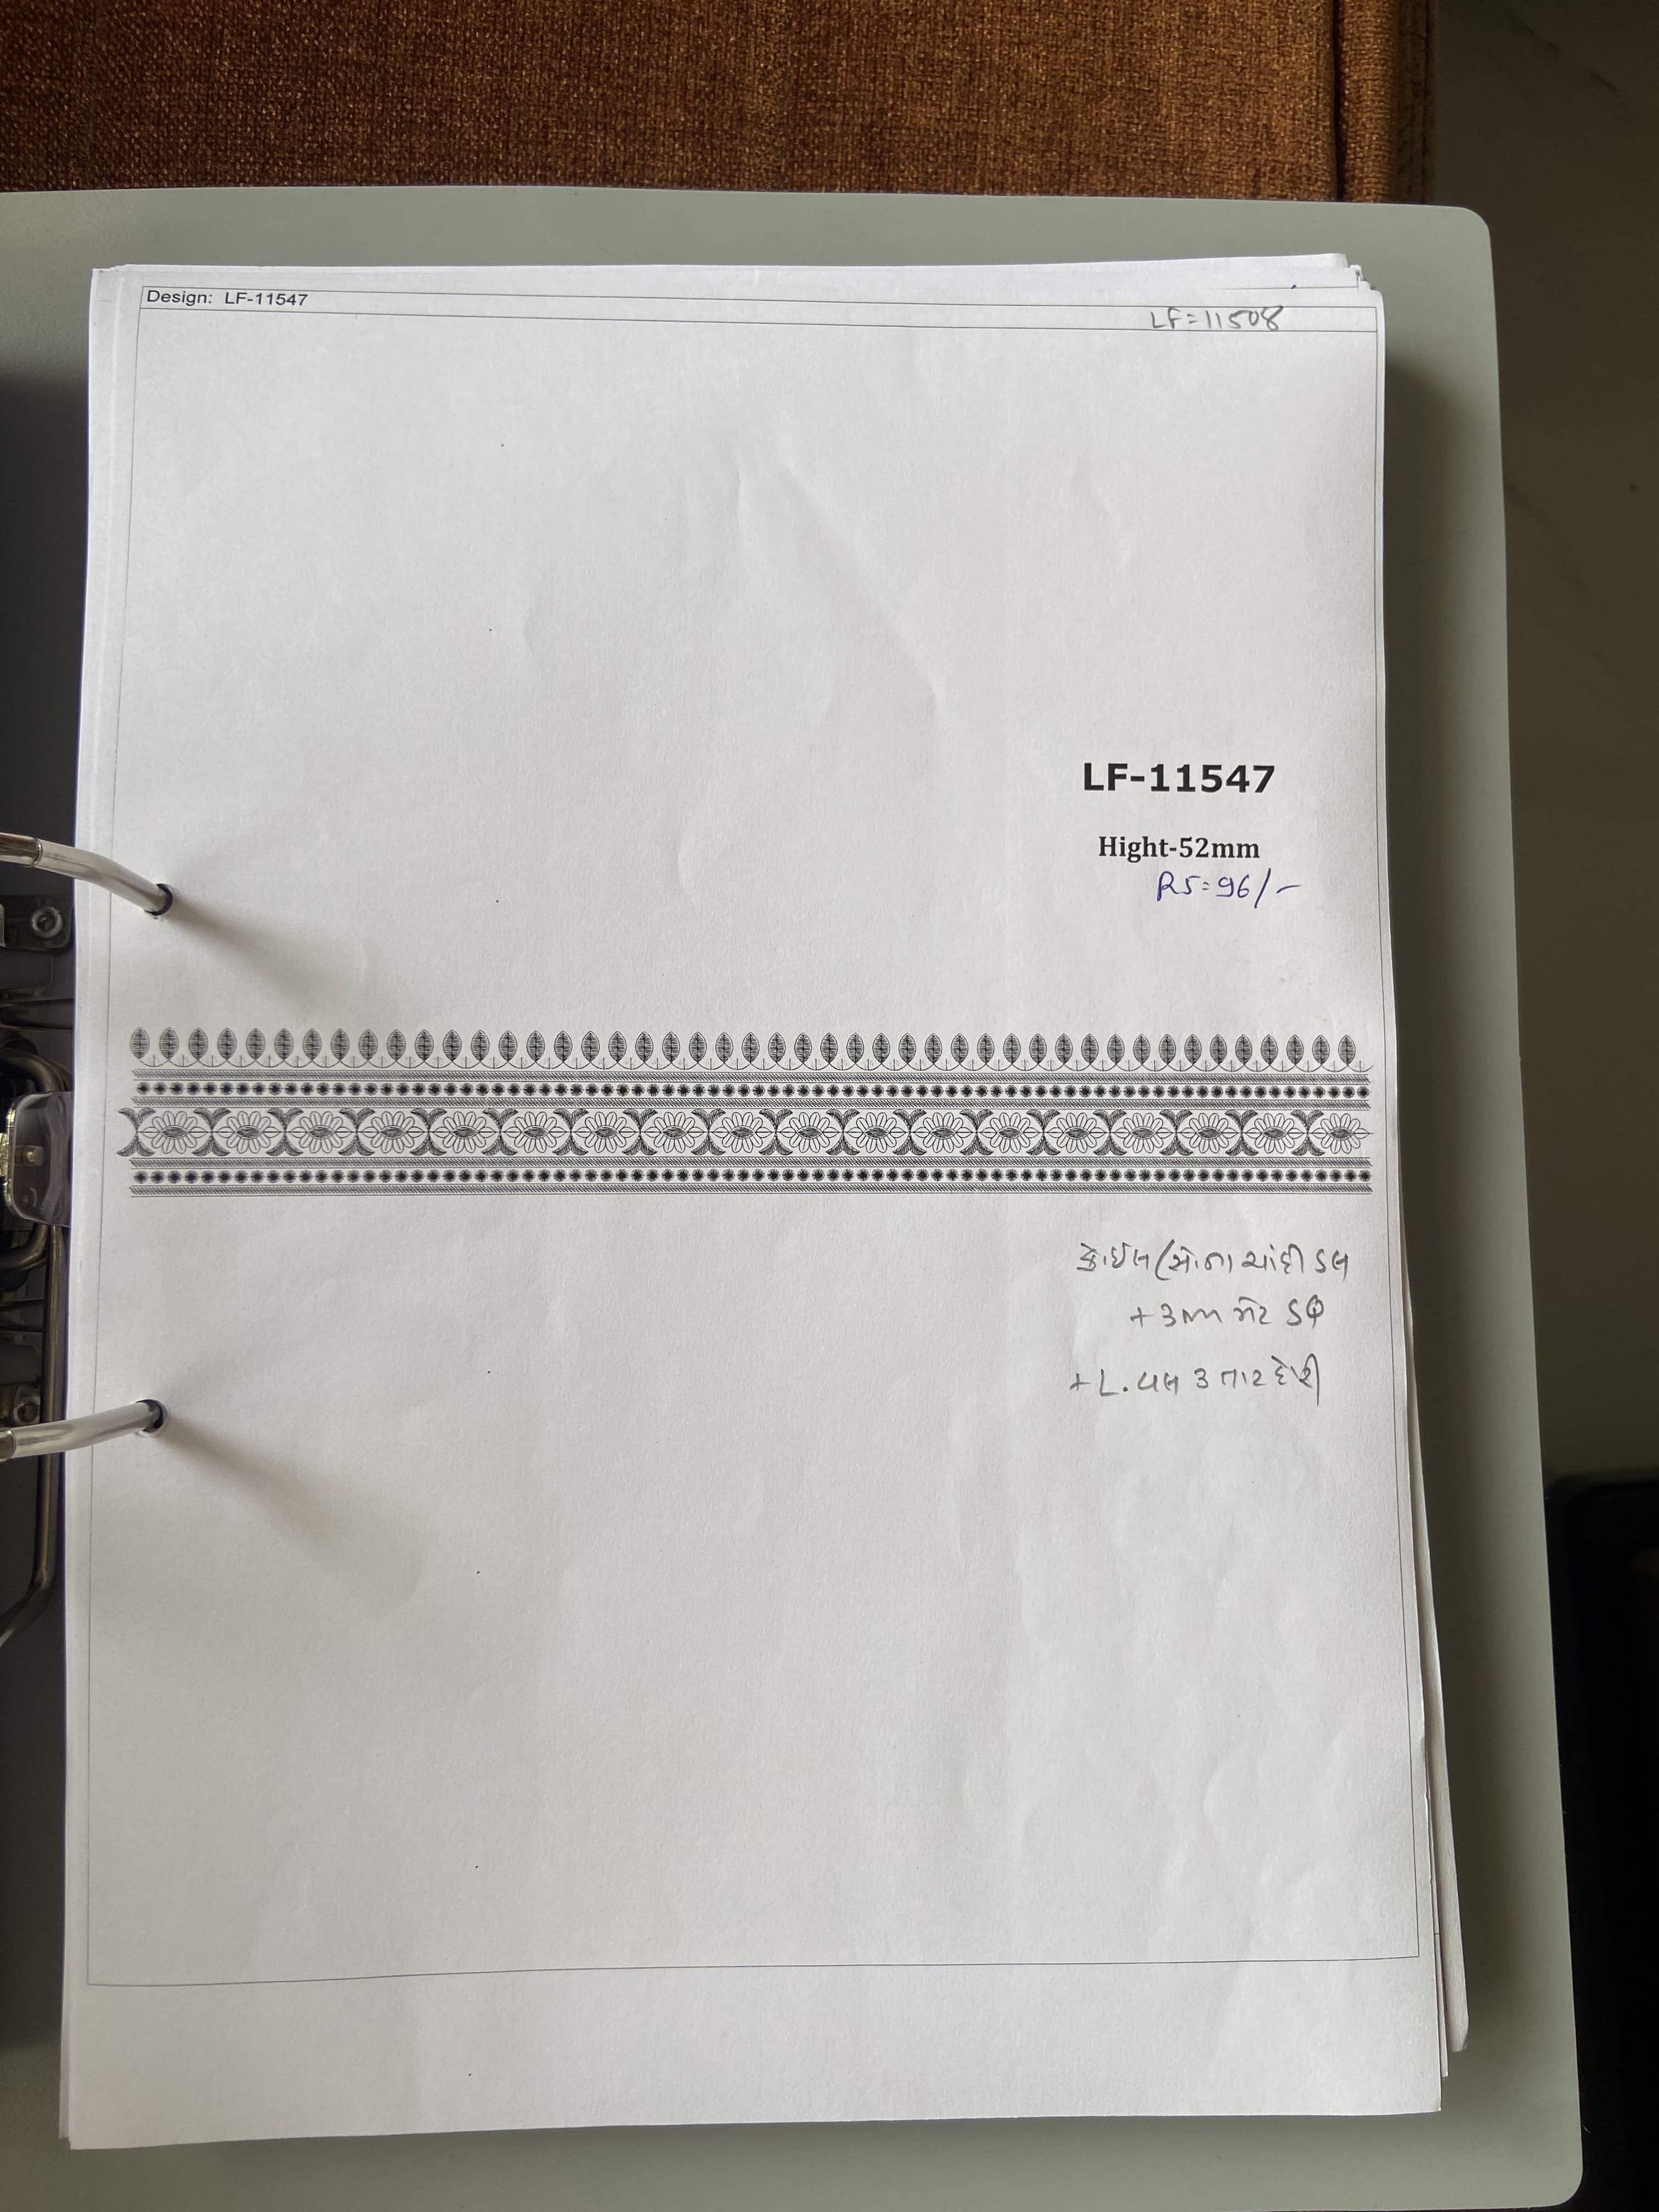 Design: LF-11547
LF=11508
LF-11547
Hight-52mm
RS=96/-
સોના ચાંદી ડલ
+ 3mm
+ L. 3 તાર